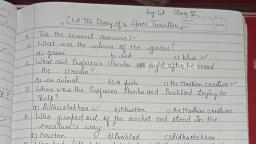 Eng Lit Class V
Ch 1 The Diary of a Space Traveller
Tick the correct answers:-
1. What was the colour of the grass?
a) green b) red c) blue
2. What did Professor Shonku see right after he heard
the scream?
a) an animal b) a fish c) the Martian creature
3. Whom were the Professor Shonku and Prahlad trying to
help?
a) Bidhushekhar b) Newton c) the Martian creature
4. Who jumped out of the rocket and stood in the
creature's way?
a) Newton b) Prahlad c) Bidhushekhar